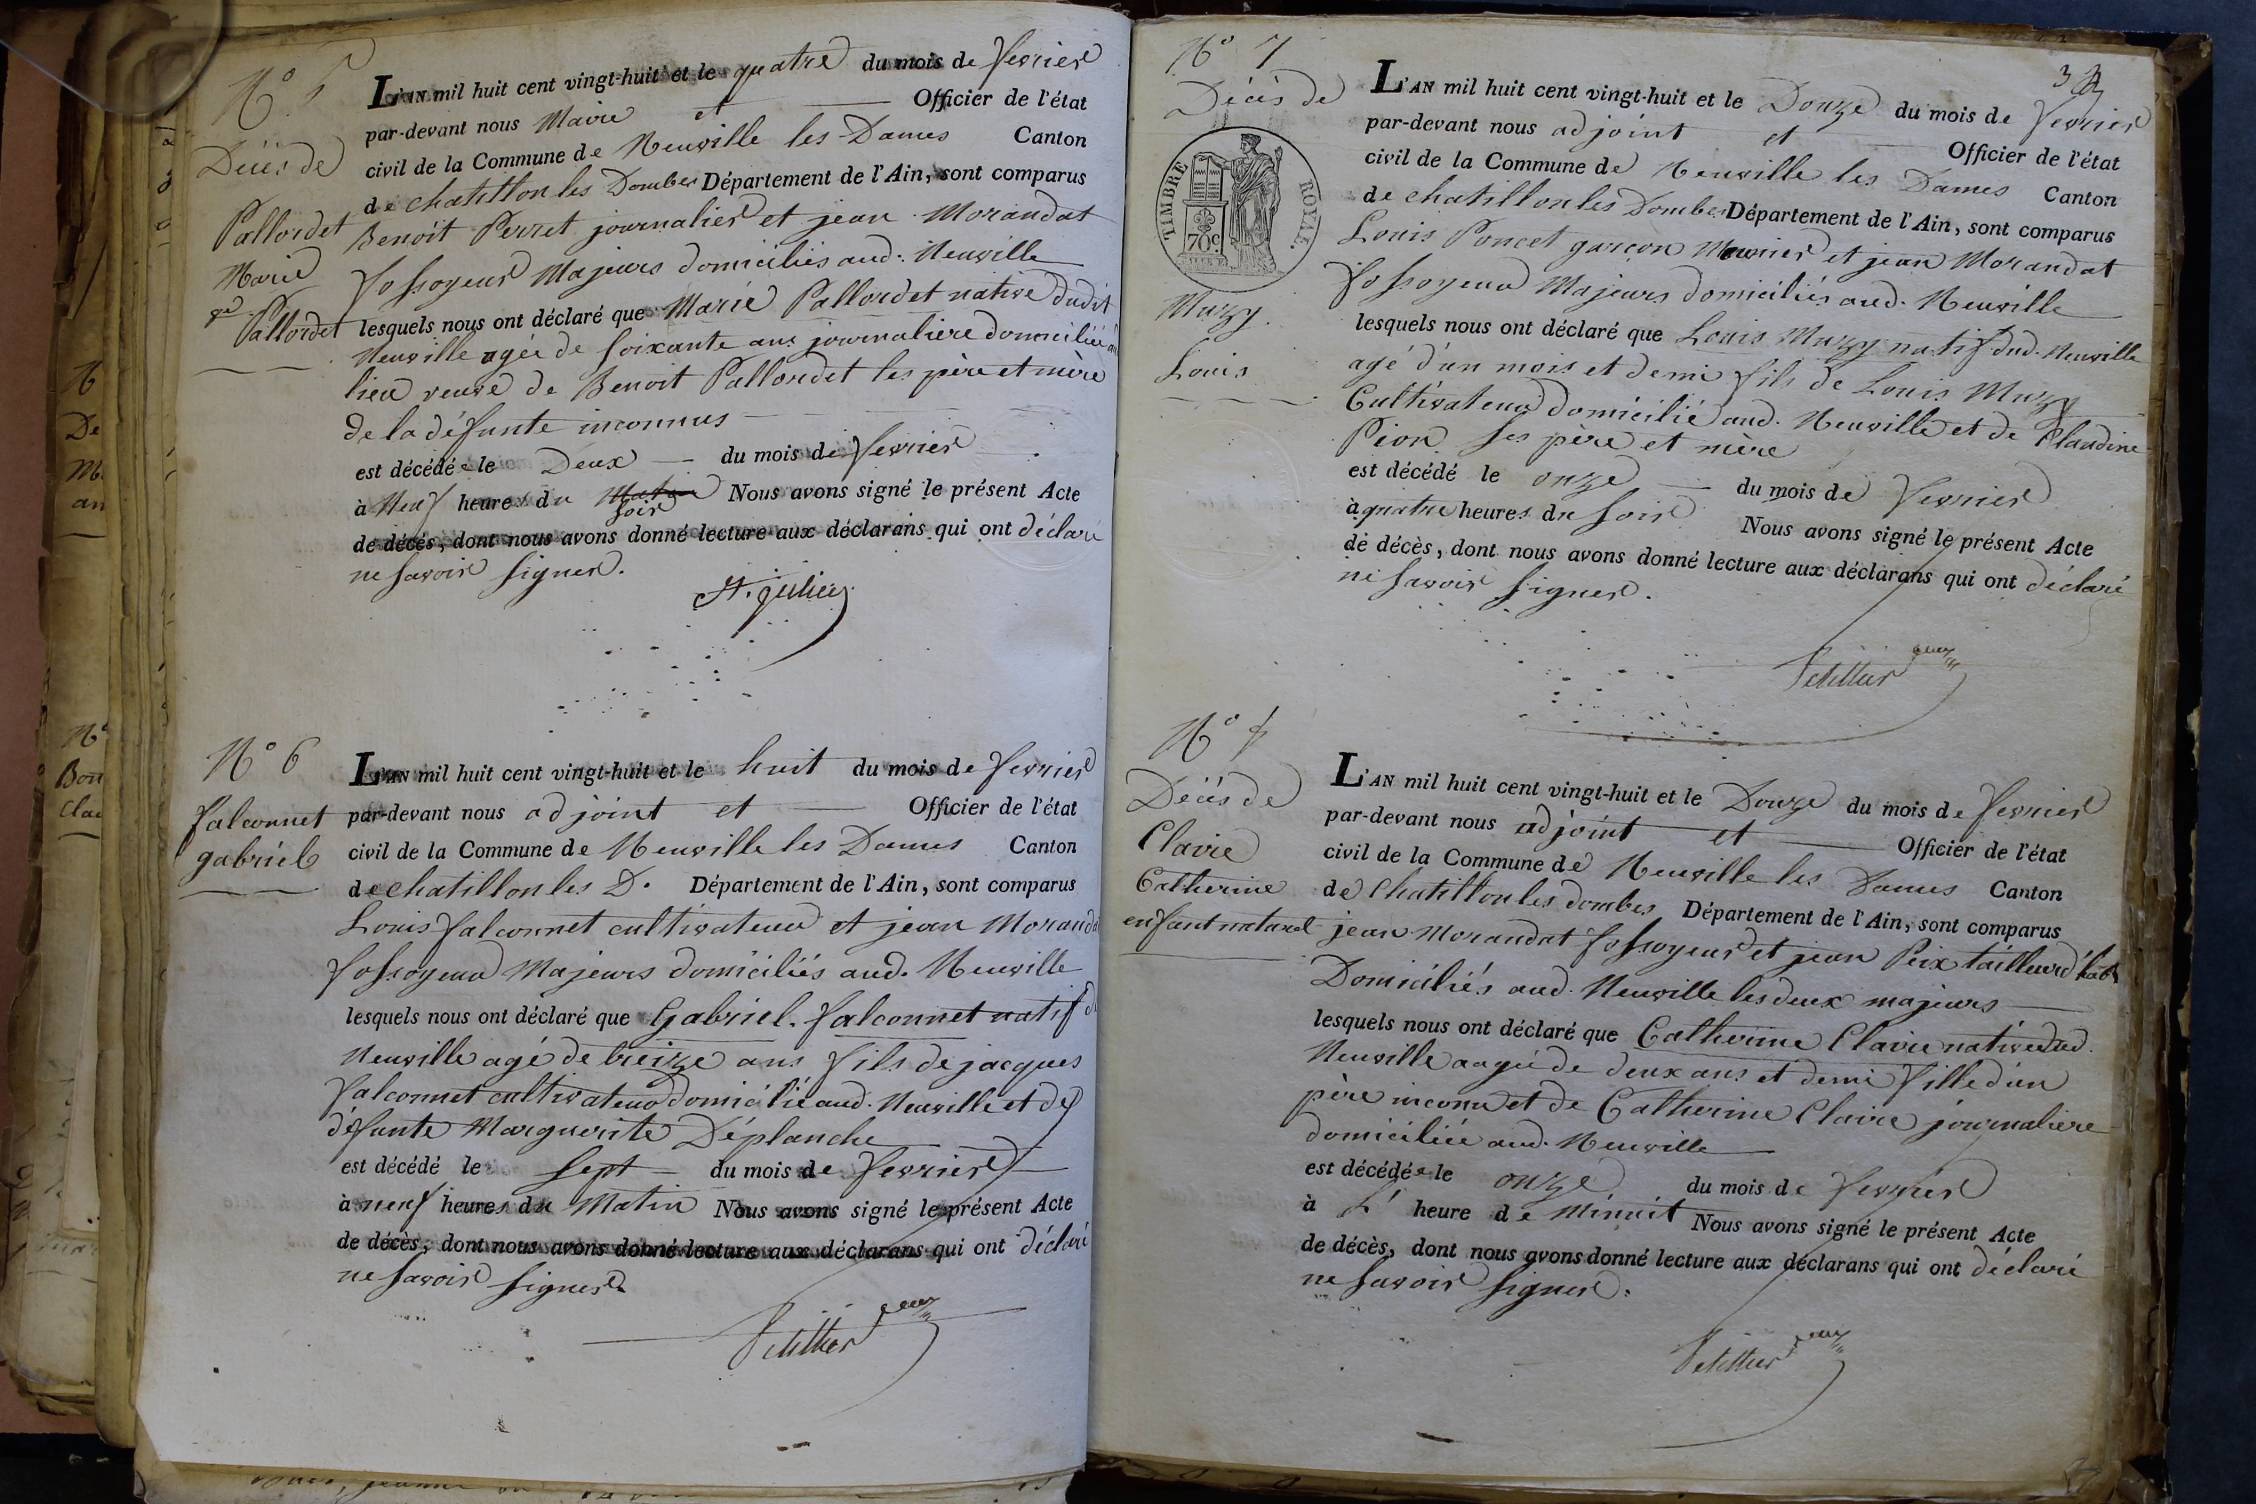 N° 5
Décès de
Pallordet
Marie
ve
Pallordet
L'AN mil huit cent vingt-huit et le quatre du mois de fevrier
par-devant nous Maire et Officier de l'état
civil de la Commune de Neuville les Dames Canton
de chatillon les Dombes Département de l'Ain, sont comparus
Benoit Perret journalier et jean Morandat
fossoyeur Majeurs domiciliés aud. Neuville
lesquels nous ont déclaré que Marie Pallordet native dudit
Neuville agée de soixante ans journaliere domiciliée au
lieu veuve de Benoit Pallordet les père et mère
de la défunte inconnus
est décédée le Deux du mois de fevrier
à Neuf heures du Matin soir Nous avons signé le présent Acte
de décès, dont nous avons donné lecture aux déclarans qui ont déclaré
ne savoir signer.
St. julien
N° 6
falconnet
gabriel
L'AN mil huit cent vingt-huit et le huit du mois de fevrier
par-devant nous adjoint et Officier de l'état
civil de la Commune de Neuville les Dames Canton
de chatillon les D. Département de l'Ain, sont comparus
Louis falconnet cultivateur et jean Morandat
fossoyeur Majeurs domiciliés aud. Neuville
lesquels nous ont déclaré que Gabriel falconnet natif du
Neuville agé de treize ans fils de jacques
falconnet cultivateur domicilié aud. Neuville et de
défunte Marguerite Déplanche
est décédé le sept du mois de fevrier
à neuf heures du Matin Nous avons signé le présent Acte
de décès, dont nous avons donné lecture aux déclarans qui ont déclaré
ne savoir signer.
N° 7
Décès de
TIMBRE ROYAL.
70c
Muzy
Louis
3
L'AN mil huit cent vingt-huit et le Douze du mois de fevrier
par-devant nous adjoint et Officier de l'état
civil de la Commune de Neuville les Dames Canton
de chatillon les Dombes Département de l'Ain, sont comparus
Louis Poncet garçon Meunier et jean Morandat
fossoyeur Majeurs domiciliés aud. Neuville
lesquels nous ont déclaré que Louis Muzy natif dud. Neuville
agé d'un mois et demi fils de Louis Muzy
Cultivateur domicilié aud. Neuville et de Claudine
Pion ses père et mère
est décédé le onze du mois de fevrier
à quatre heures du soir Nous avons signé le présent Acte
de décès, dont nous avons donné lecture aux déclarans qui ont déclaré
ne savoir signer.
N° 8
Décès de
Claire
Catherine
enfant naturel
L'AN mil huit cent vingt-huit et le Douze du mois de fevrier
par-devant nous adjoint et Officier de l'état
civil de la Commune de Neuville les Dames Canton
de Chatillon les dombes Département de l'Ain, sont comparus
jean Morandat fossoyeur et jean Peix tailleur d'hab
Domiciliés aud. Neuville les deux majeurs
lesquels nous ont déclaré que Catherine Claire native dud.
Neuville aagée de deux ans et demi fille d'un
père inconnu et de Catherine Claire journaliere
domiciliée aud. Neuville
est décédée le onze du mois de fevrier
à L' heure de Minuit Nous avons signé le présent Acte
de décès, dont nous avons donné lecture aux déclarans qui ont déclaré
ne savoir signer.